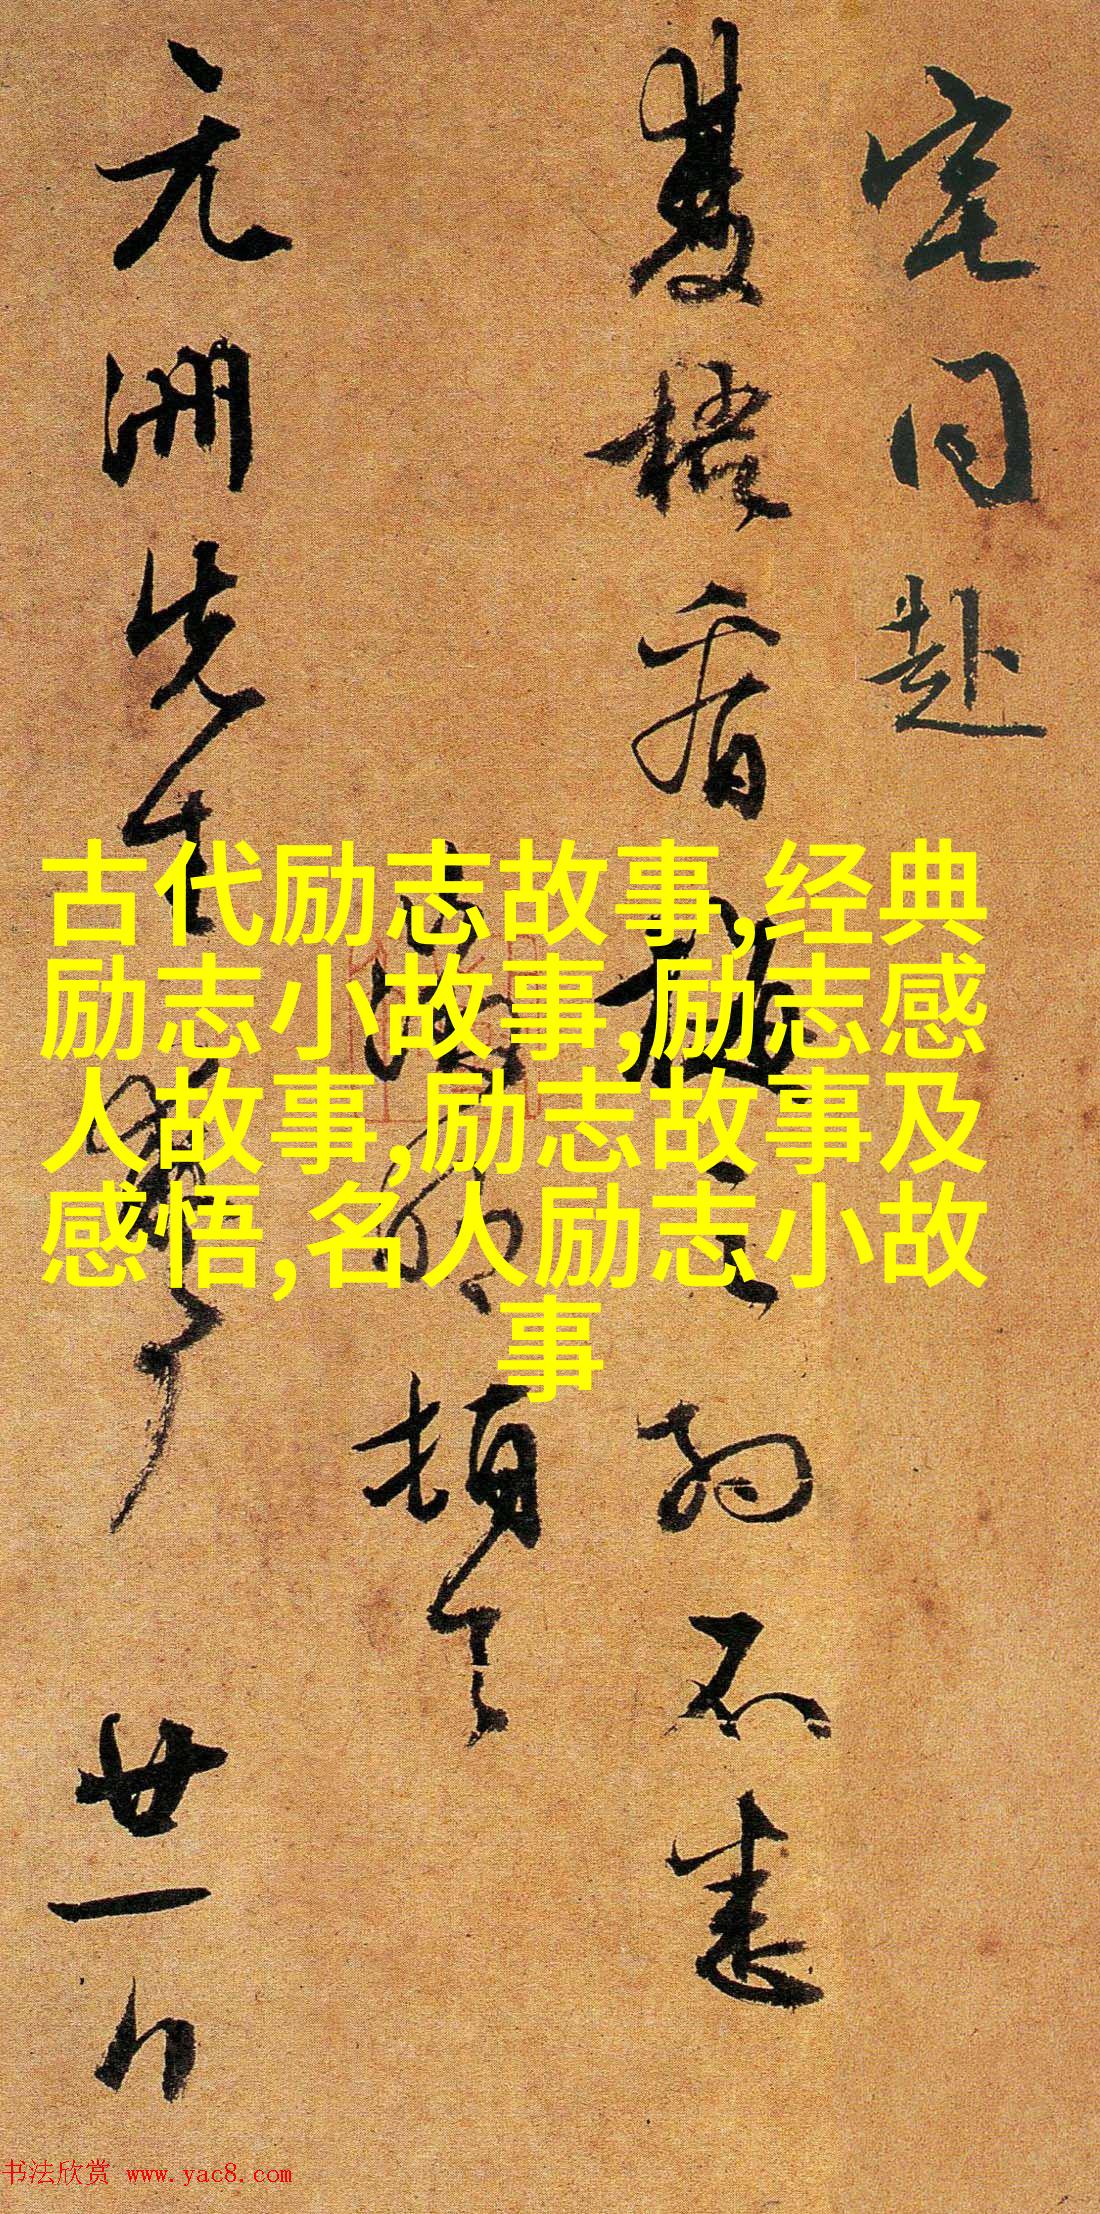 宅同赴
梧看之不悉
明頓首
元洲先生 廿一日
古代励志故事,经典
励志小故事,励志感
人故事,励志故事及
感悟,名人励志小故
事
书法欣赏 www.yac8.com